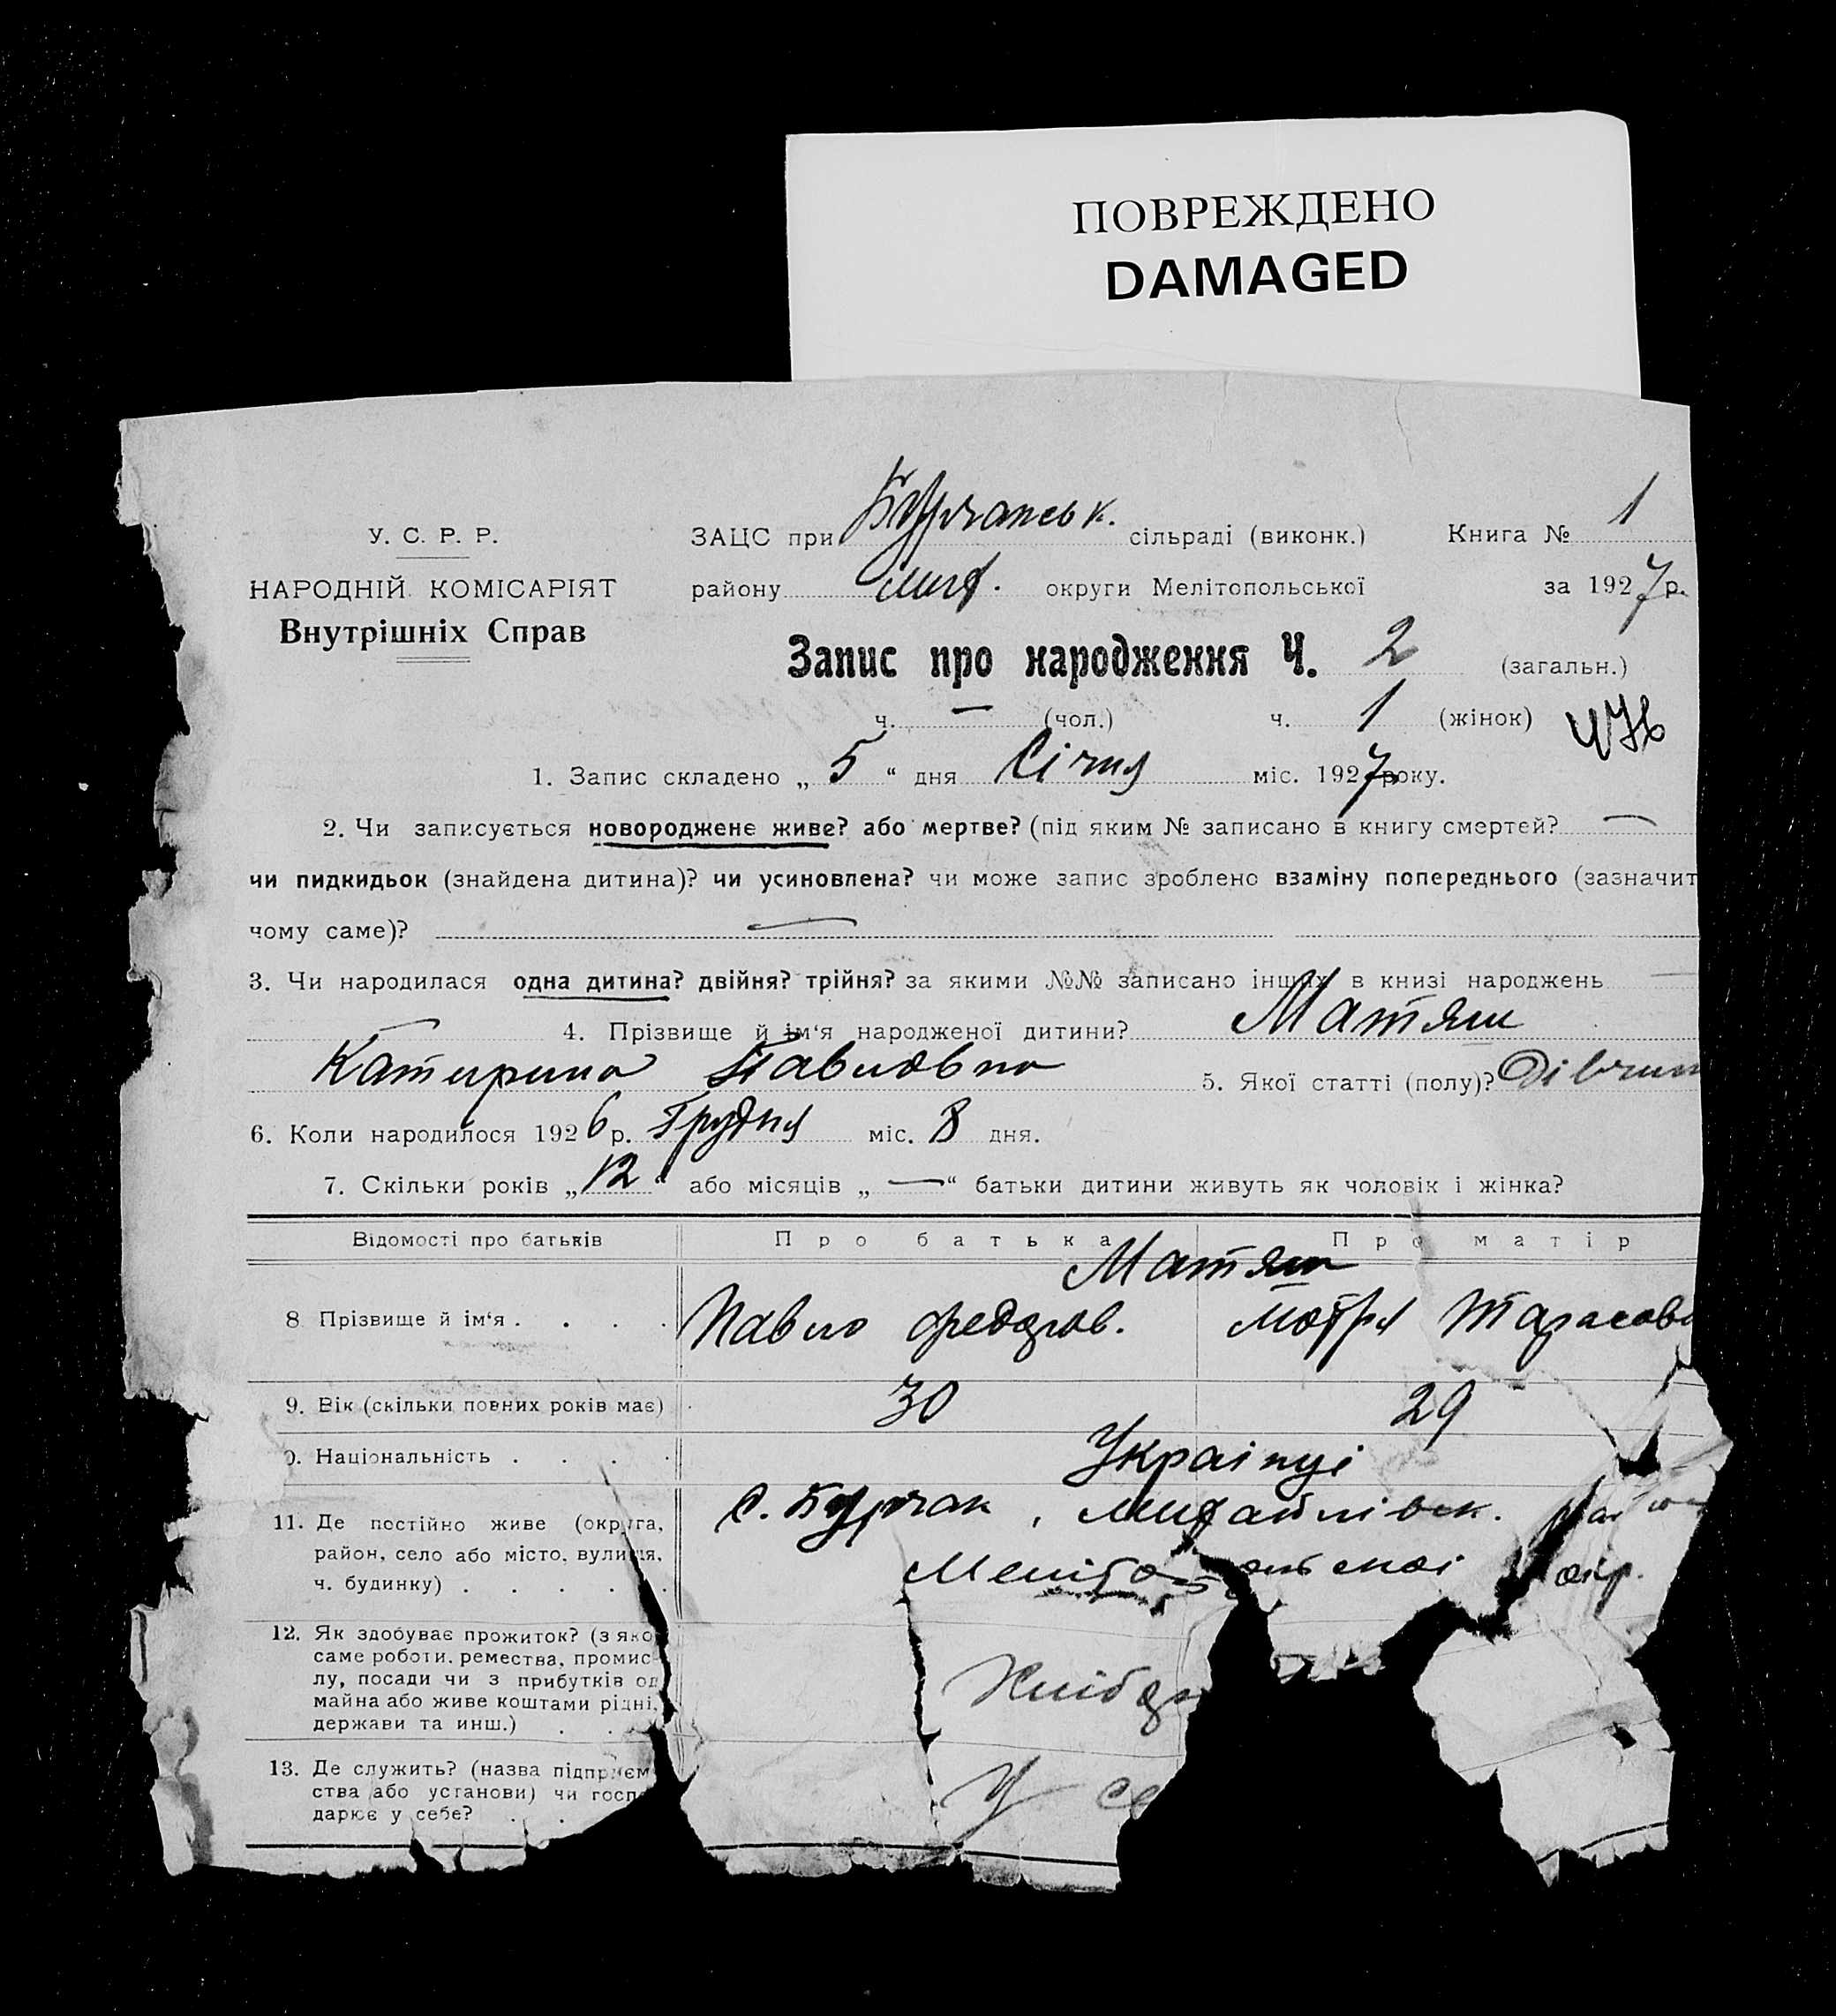 ПОВРЕЖДЕНО
DAMAGED
У. С. Р. Р.
НАРОДНІЙ КОМІСАРІЯТ
Внутрішніх Справ
ЗАЦС при Бурчанськ. сільраді (виконк.) Книга № 1
району Мих. округи Мелітопольської за 1927 р.
Запис про народження Ч. 2 (загальн.)
ч. — (чол.) ч. 1 (жінок)
1. Запис складено „ 5 “ дня Січня міс. 1927 року.
2. Чи записується новороджене живе? або мертве? (під яким № записано в книгу смертей? —
чи пидкидьок (знайдена дитина)? чи усиновлена? чи може запис зроблено взаміну попереднього (зазначит
чому саме)? —
3. Чи народилася одна дитина? двійня? трійня? за якими №№ записано інших в книзі народжень —
— 4. Прізвище й ім‘я народженої дитини? Матяш
Катирина Павловна 5. Якої статті (полу)? Дівчин
6. Коли народилося 1926 р. Грудня міс. 8 дня.
7. Скільки років „ 12 “ або місяців „ — “ батьки дитини живуть як чоловік і жінка?
Відомості про батьків Про батька Про матір
Матяш
8 Прізвище й ім‘я . . . . Павло Федоров. Мотря Тарасовн
9. Вік (скільки повних років має) 30 29
0. Національність . . . . Українці
11. Де постійно живе (округа, район, село або місто, вулиця, ч. будинку) . . . . . с. Бурчак, Михайлівськ. район
Мелітопольської окр.
12. Як здобуває прожиток? (з яко
саме роботи, ремества, промис-
лу, посади чи з прибутків од
майна або живе коштами рідні,
держави та инш.) . . . Хлібор
13. Де служить? (назва підприєм
ства або установи) чи госпо
дарює у себе? . . У се